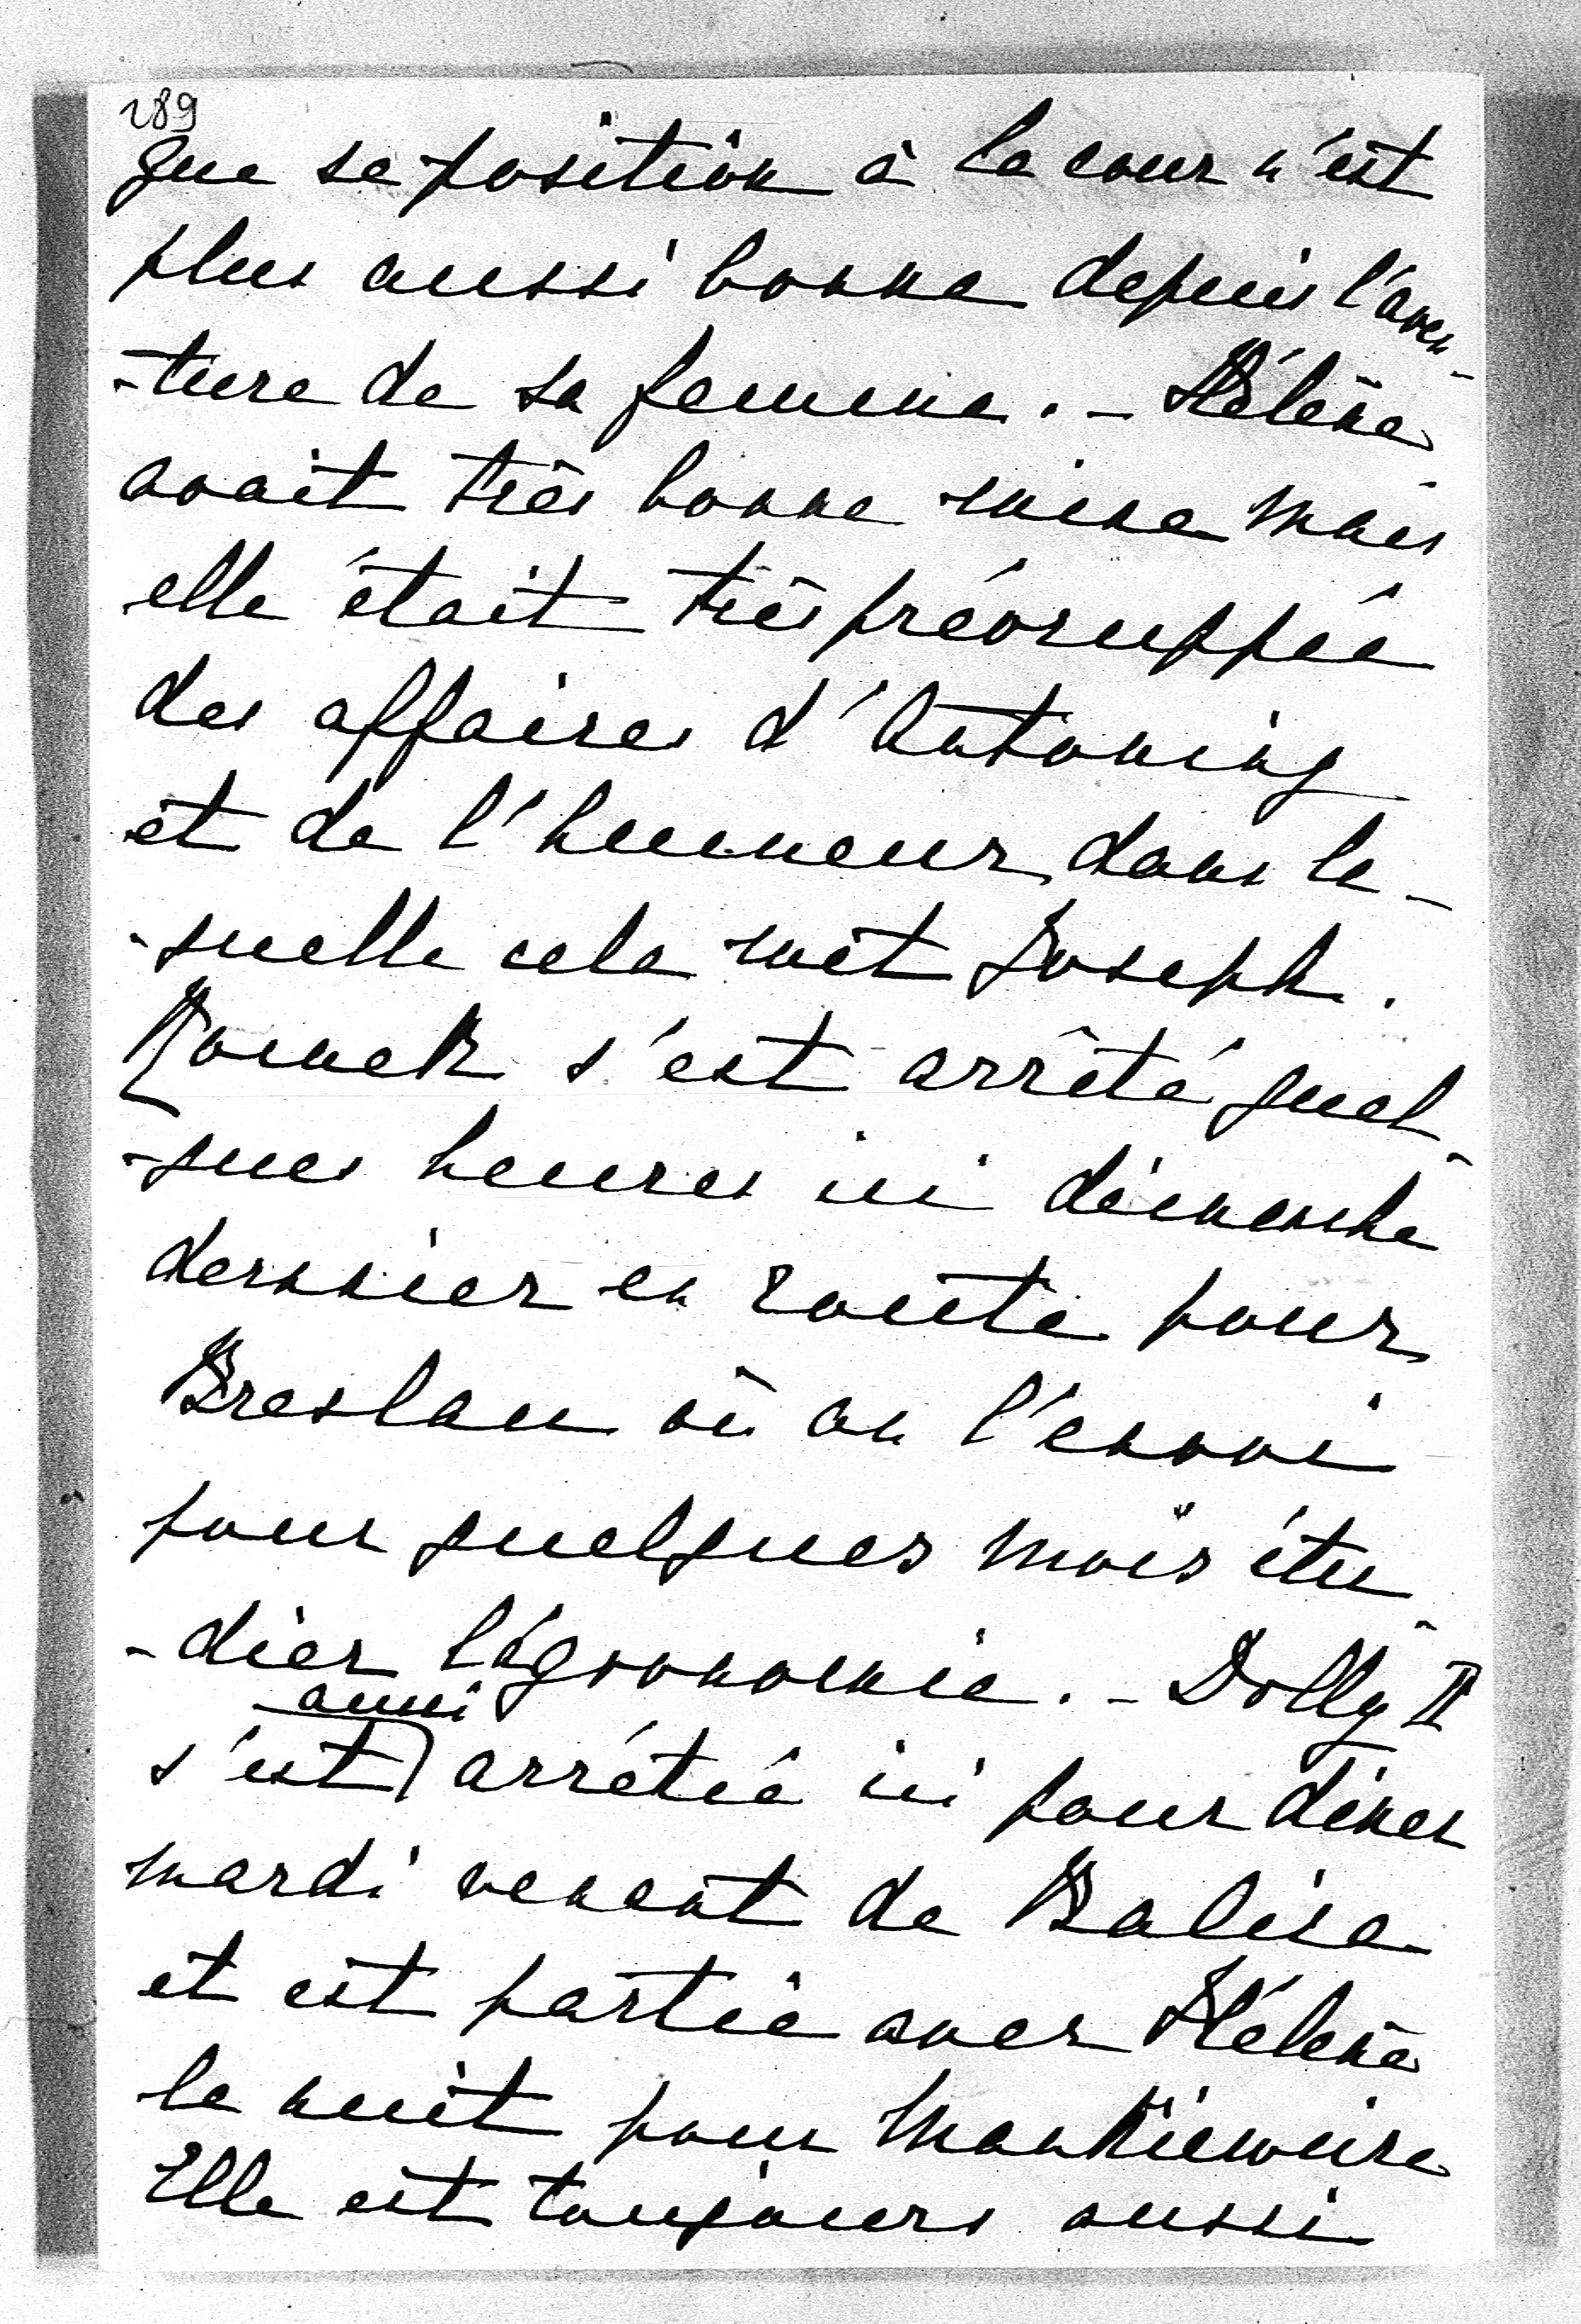 289
que sa position à la cour n'est
plus aussi bonne depuis l'aven-
-ture de sa femme. - Hélène
avait très bonne mine mais
elle était très préocuppée
des affaires d'Antoniny
et de l'humeur dans la-
-quelle cela met Joseph.
Romek s'est arrêté quel-
-ques heures ici dimanche
dernier en route pour
Breslau où on l'envoi
pour quelques mois étu-
-dier l'agronomie. - Dolly II
aussi
s'est arrêtée ici pour dîner
mardi venant de Balice
et est partie avec Hélène
la nuit pour Mańkiewicze
Elle est toujours aussi